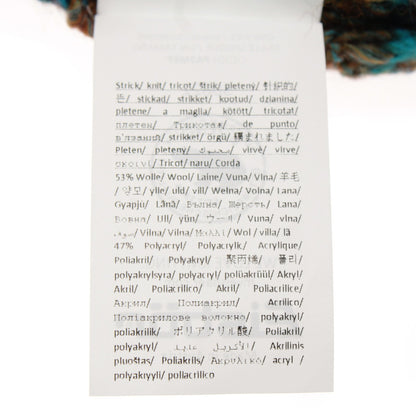 Strick/ knit/ tricot/ štrik/ pletený/ 針織的/
뜬/ stickad/ strikket/ kootud/ dzianina/
pletene/ a maglia/ kötött/ tricotat/
плетен/ Трикотаж/ de punto/
в'язаний/ strikket/ örgü/ 編まれました/
Pleten/ pletený/ virvė/ virve/
σκοινί/ Tricot/ naru/ Corda
53% Wolle/ Wool/ Laine/ Vuna/ Vlna/ 羊毛
/ 양모/ ylle/ uld/ vill/ Wełna/ Volna/ Lana/
Gyapjú/ Lână/ Вълна/ Шерсть/ Lana/
Вовна/ Ull/ yün/ ウール/ Vuna/ vlna/
صوف/ Vilna/ Vilna/ Μαλλί/ Wol/ villa/ lã
47% Polyacryl/ Polyacrylk/ Acrylique/
Poliakril/ Polyakryl/ 聚丙烯/ 폴리/
polyakrylsyra/ polyacryl/ polüakrüül/ Akryl/
Akril/ Poliacrilico/ Akril/ Poliacrilice/
Акрил/ Полиакрил/ Acrilico/
Поліакрилове волокно/ polyakryl/
poliakrilik/ ポリアクリル酸/ Poliakril/
polyakryl/ الأكريل عليد/ Akrilinis
pluoštas/ Poliakrils/ Ακρυλικό/ acryl/
polyakryyli/ poliacrilico